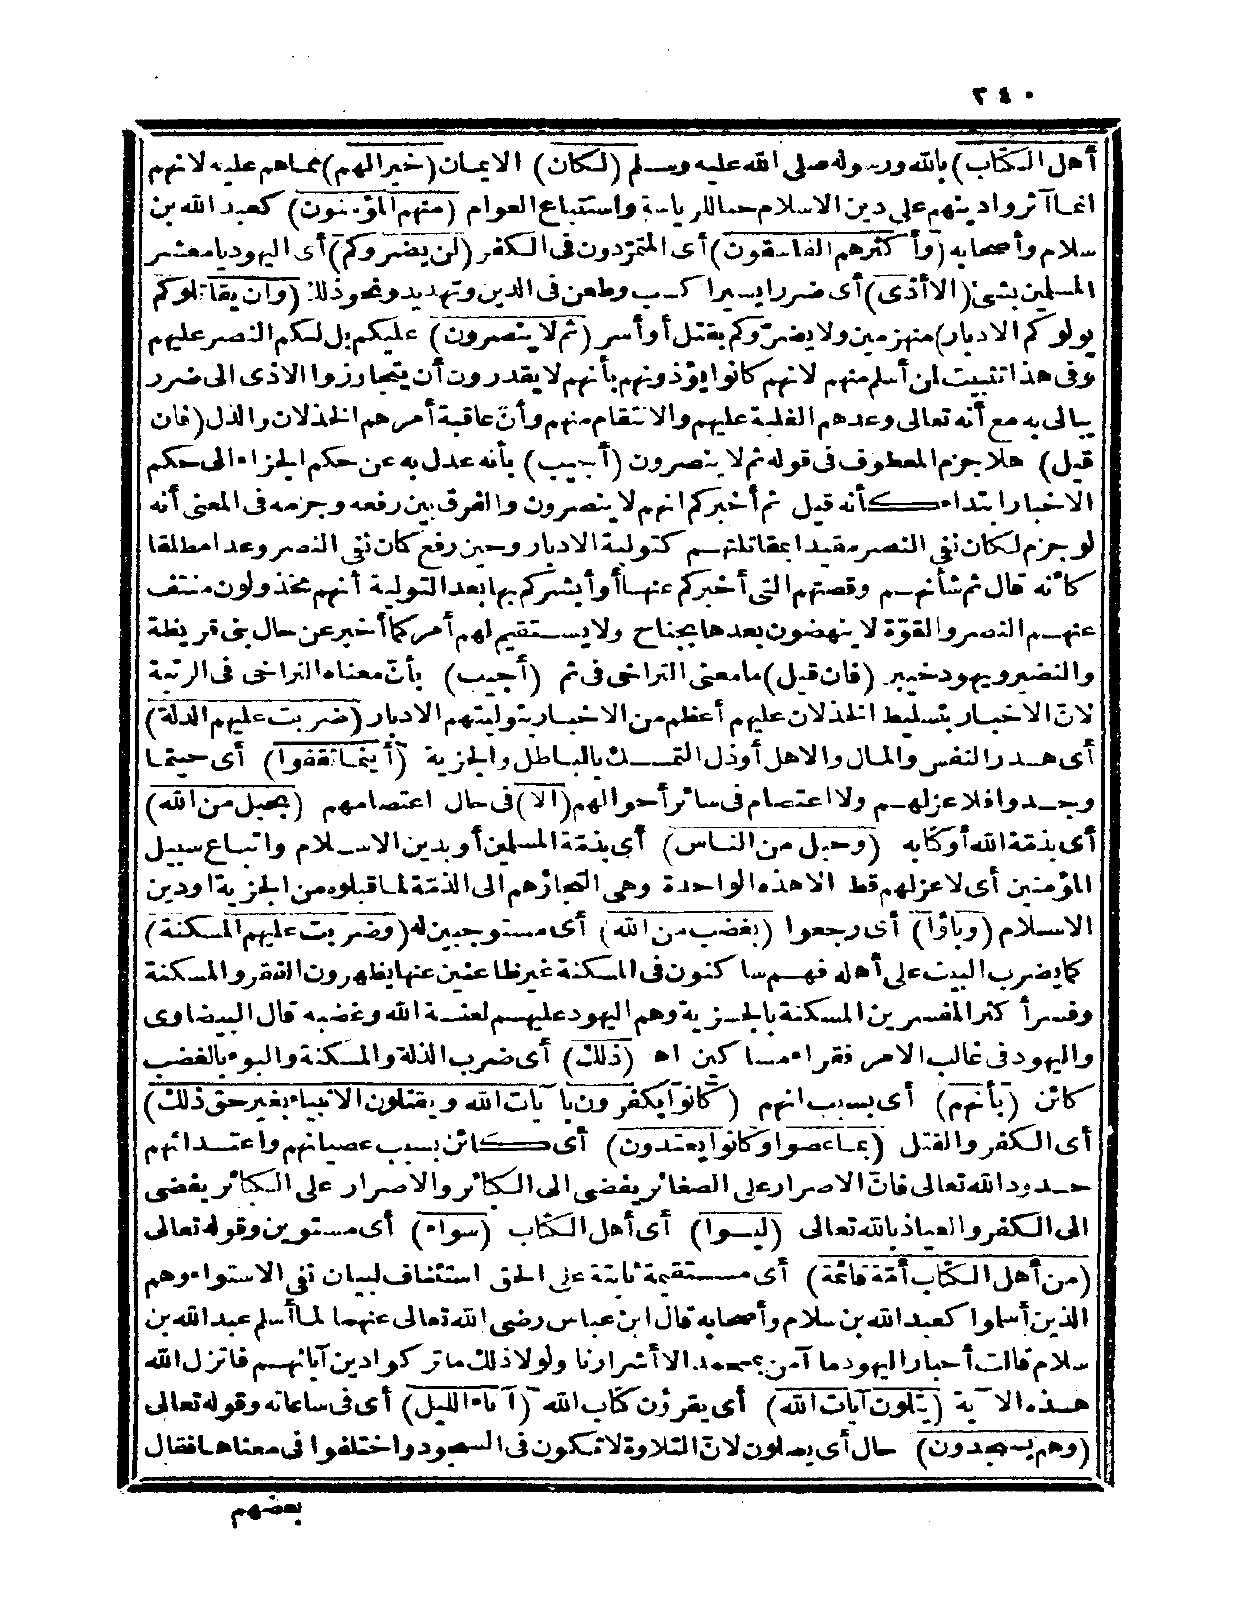 ٢٤٠
أهل الكتاب) بالله ورسوله صلى الله عليه وسلم (لكان) الايمان (خيرا لهم) مما هم عليه لانهم
انما آثروا دينهم على دين الاسلام حبا للرياسة واستتباع العوام (منهم المؤمنون) كعبد الله بن
سلام وأصحابه (وأكثرهم الفاسقون) أى المتمرّدون فى الكفر (لن يضروكم) أى اليهود يا معشر
المسلمين بشئ (الا أذى) أى ضررا يسيرا كسب وطعن فى الدين وتهديد ونحو ذلك (وان يقاتلوكم
يولوكم الادبار) منهزمين ولا يضرّوكم بقتل أو أسر (ثم لا ينصرون) عليكم بل لكم النصر عليهم
وفى هذا تثبيت لمن أسلم منهم لانهم كانوا يؤذونهم بأنهم لا يقدرون أن يتجاوزوا الاذى الى ضرر
يبالى به مع أنه تعالى وعدهم الغلبة عليهم والانتقام منهم وأنّ عاقبة أمرهم الخذلان والذل (فان
قيل) هلا جزم المعطوف فى قوله ثم لا ينصرون (أجيب) بأنه عدل به عن حكم الجزاء الى حكم
الاخبار ابتداء كأنه قيل ثم أخبركم انهم لا ينصرون والفرق بين رفعه وجزمه فى المعنى أنه
لو جزم لكان نفى النصر مقيدا بمقاتلتهم كتولية الادبار وحين رفع كان نفى النصر وعدا مطلقا
كأنه قال ثم شأنهم وقصتهم التى أخبركم عنها أو أبشركم بها بعد التولية أنهم مخذولون منتف
عنهم النصر والقوّة لا ينهضون بعدها بجناح ولا يستقيم لهم أمر كما أخبر عن حال بنى قريظة
والنضير ويهود خيبر (فان قيل) ما معنى التراخى فى ثم (أجيب) بأنّ معناه التراخى فى الرتبة
لانّ الاخبار بتسليط الخذلان عليهم أعظم من الاخبار بتوليتهم الادبار (ضربت عليهم الذلة)
أى هدر النفس والمال والاهل أو ذل التمسك بالباطل والجزية (أينما ثقفوا) أى حيثما
وجدوا فلا عز لهم ولا اعتصام فى سائر أحوالهم (الا) فى حال اعتصامهم (بحبل من الله)
أى بذمّة الله أو كتابه (وحبل من الناس) أى بذمّة المسلمين أو بدين الاسلام واتباع سبيل
المؤمنين أى لا عز لهم قط الا هذه الواحدة وهى التجاؤهم الى الذمّة لما قبلوه من الجزية او دين
الاسلام (وباؤا) أى رجعوا (بغضب من الله) أى مستوجبين له (وضربت عليهم المسكنة)
كما يضرب البيت على أهله فهم ساكنون فى المسكنة غير ظاعنين عنها يظهرون الفقر والمسكنة
وفسر أكثر المفسرين المسكنة بالجزية وهم اليهود عليهم لعنة الله وغضبه قال البيضاوى
واليهود فى غالب الامر فقراء مساكين اه (ذلك) أى ضرب الذلة والمسكنة والبوء بالغضب
كائن (بأنهم) أى بسبب انهم (كانوا يكفرون بآيات الله ويقتلون الانبياء بغير حق ذلك)
أى الكفر والقتل (بما عصوا وكانوا يعتدون) أى كائن بسبب عصيانهم واعتدائهم
حدود الله تعالى فانّ الاصرار على الصغائر يفضى الى الكبائر والاصرار على الكبائر يفضى
الى الكفر والعياذ بالله تعالى (ليسوا) أى أهل الكتاب (سواء) أى مستوين وقوله تعالى
(من أهل الكتاب أمّة قائمة) أى مستقيمة ثابتة على الحق استئناف لبيان نفى الاستواء وهم
الذين أسلموا كعبد الله بن سلام وأصحابه قال ابن عباس رضى الله تعالى عنهما لما أسلم عبد الله بن
سلام قالت أحبار اليهود ما آمن بمحمد الا أشرارنا ولولا ذلك ما تركوا دين آبائهم فانزل الله
هذه الآية (يتلون آيات الله) أى يقرؤن كتاب الله (آناء الليل) أى فى ساعاته وقوله تعالى
(وهم يسجدون) حال أى يصلون لانّ التلاوة لا تكون فى السجود واختلفوا فى معناها فقال
بعضهم